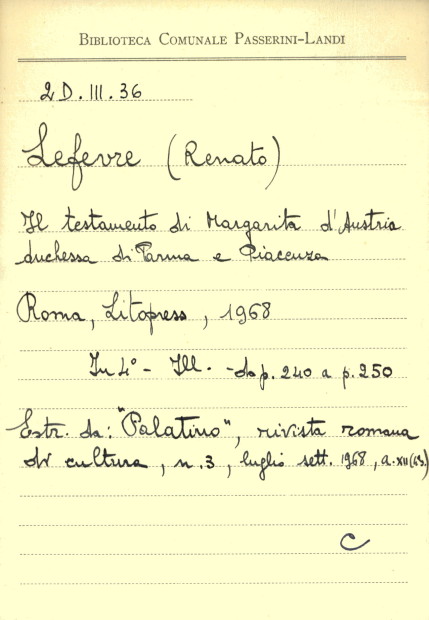 BIBLIOTECA COMUNALE PASSERINI-LANDI
2D.III.36
Lefevre (Renato)
Il testamento di Margarita d'Austria
duchessa di Parma e Piacenza
Roma, Litopress, 1968
In 4° - Ill. - da p. 240 a p. 250
Estr. da: "Palatino", rivista romana
di cultura, n. 3, luglio sett. 1968, a. XII (4S.)
C